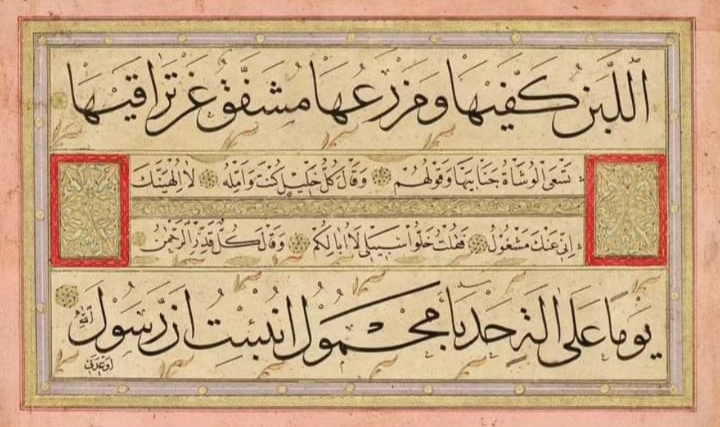 اللبن كفيها ومزرعها مشفق عن تراقيها
تسعى الوشاة جنابيها وقولهم وقال كل خليل كنت وامله لا الهينك
انى عنك مشغول فقلت خلوا سبيلى لا ابا لكم وقال كل قدر الرحمن
يوما على الة حدبا محمول انبئت ان رسول الله
اوعدنى